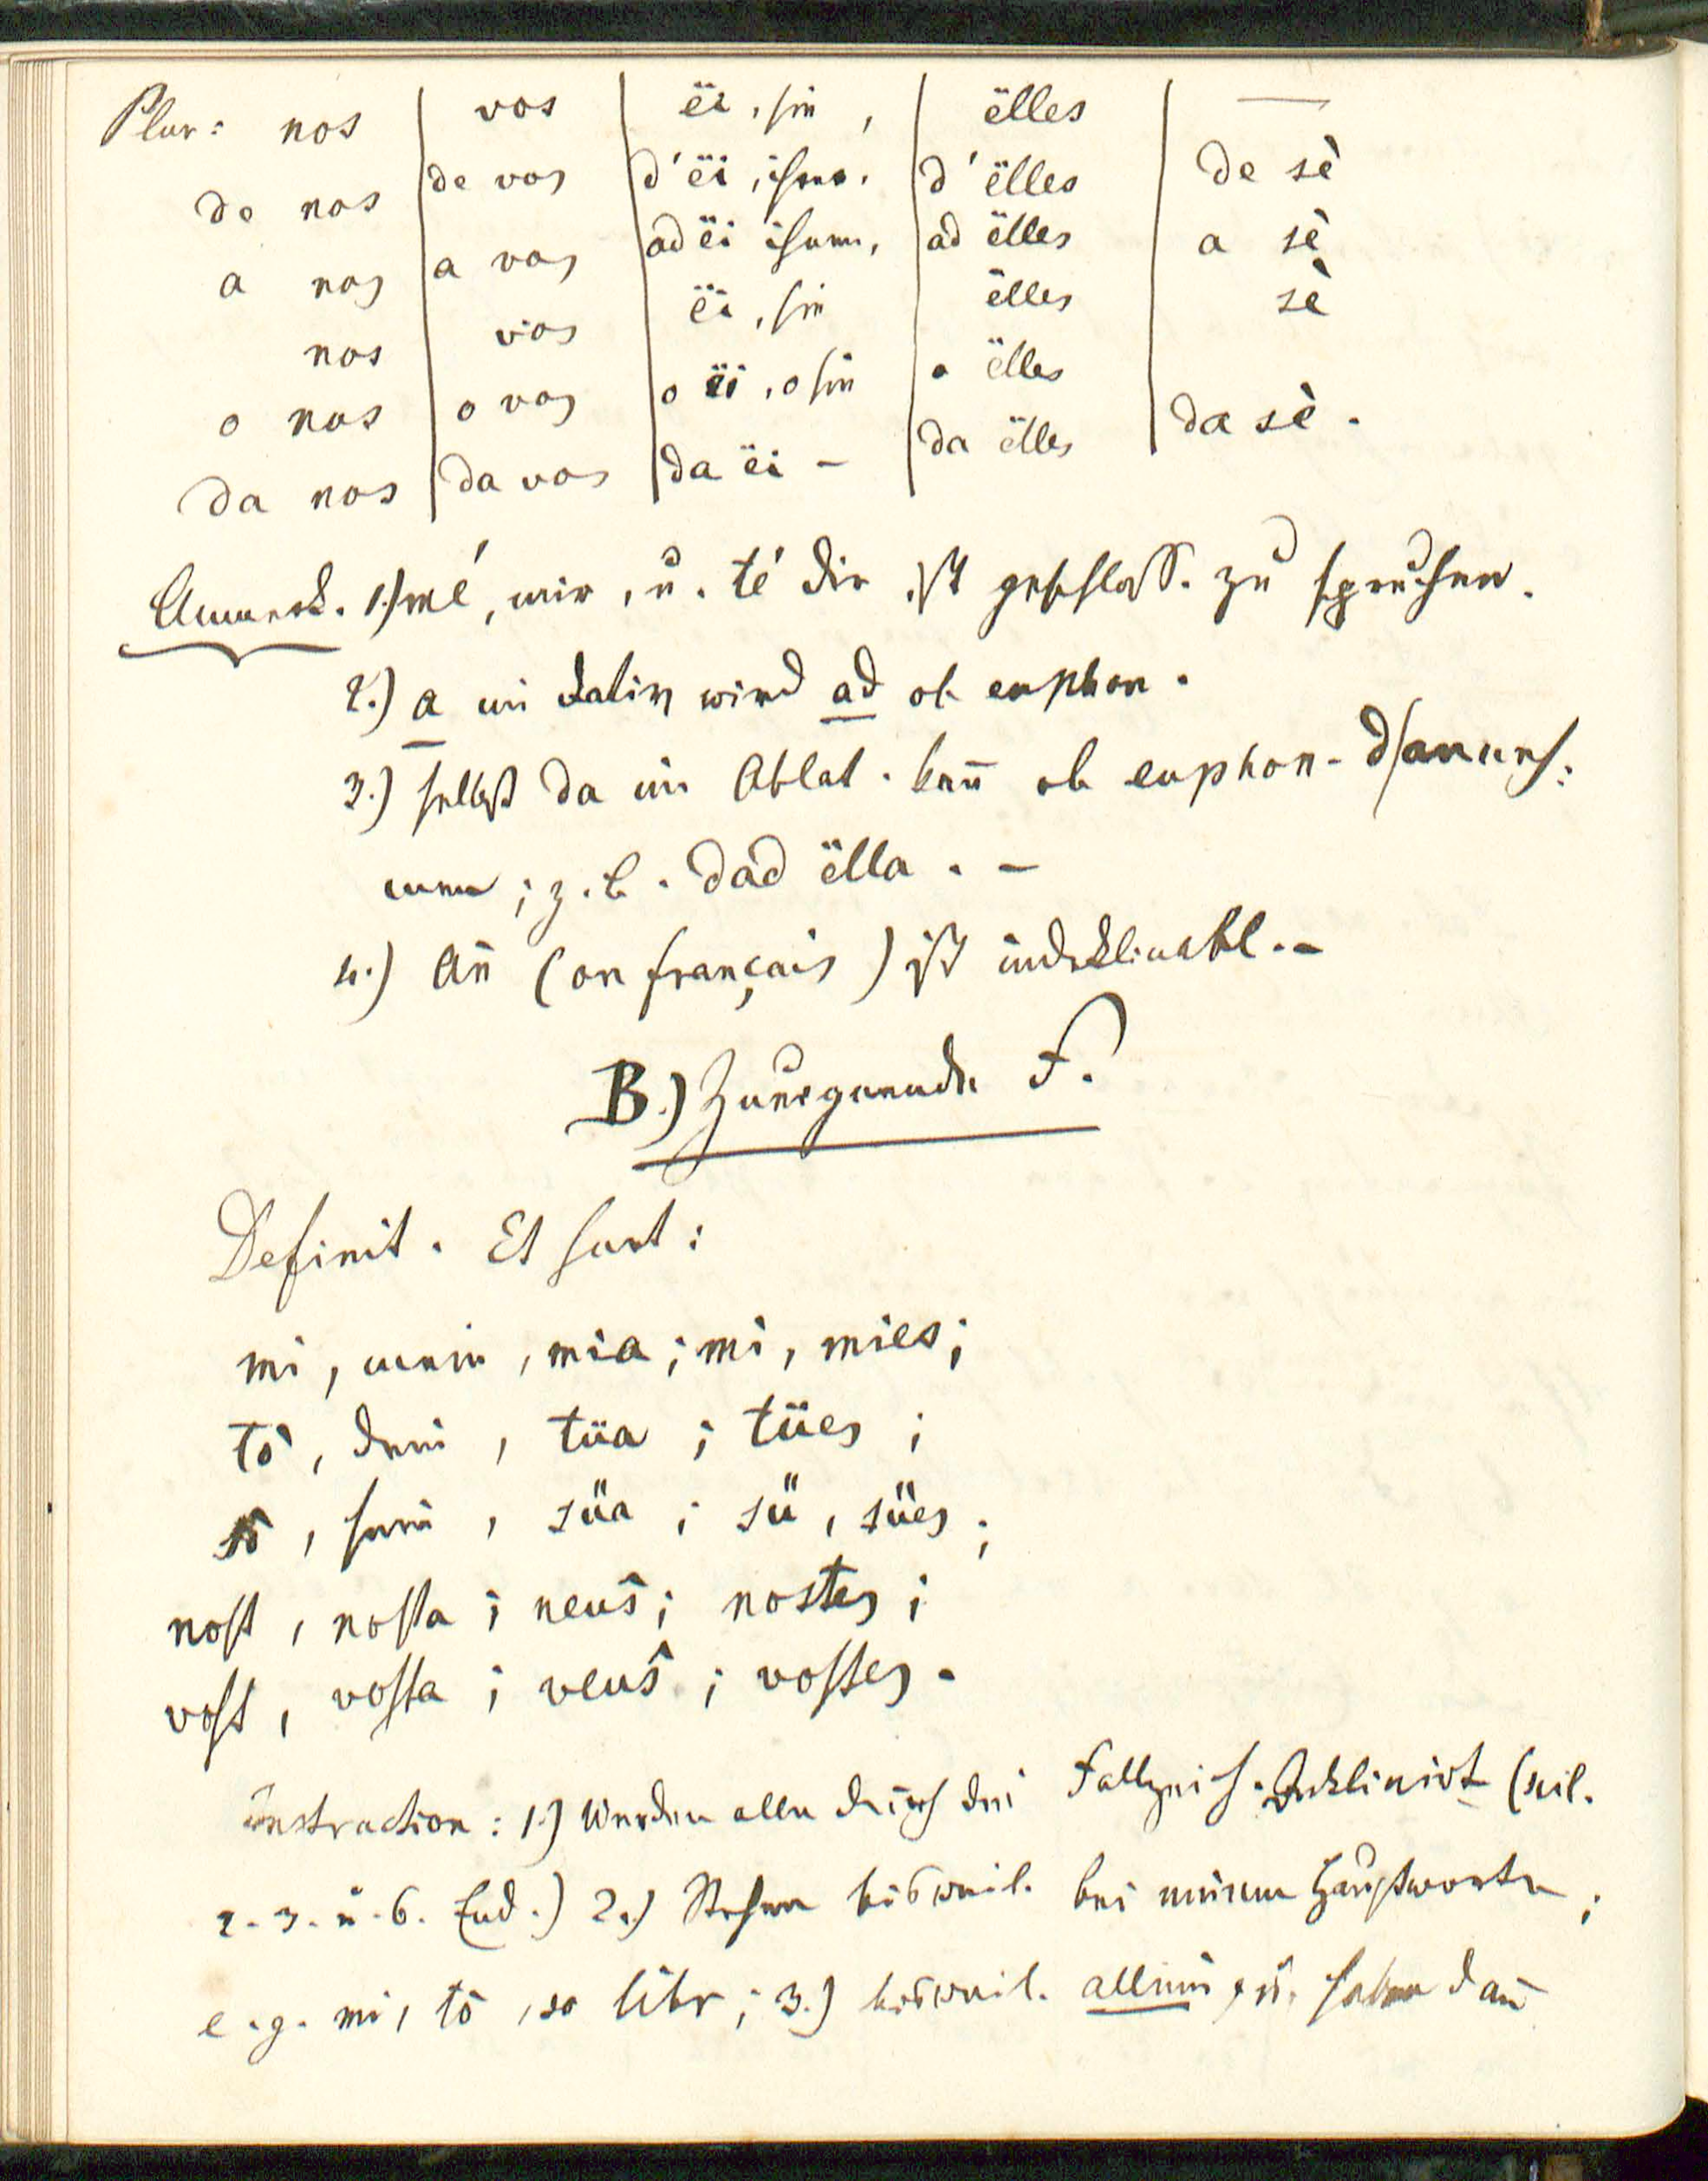 Plur: nos | vos | ëi, sie, | ëlles | —
de nos | de vos | d'ëi, ihrer. | d'ëlles | de sè
a nos | a vos | ad ëi ihnen, | ad ëlles | a sè
nos | vos | ëi, sie | ëlles | sè
o nos | o vos | o ëi, o sie | o ëlles
da nos | da vos | da ëi – | da ëlles | da sè.
Anmerk. 1.) mé, mir, u. té dir ist geschloss. zu sprechen.
2.) a im Dativ wird ad ob euphon.
3.) selbst da im Ablat. kan̄ ob euphon. d anneh:
men; z.b. dad ëlla. –
4.) An̄ (on français) ist indeklinabl. –
B.) Zueignende F.
Definit. Et sunt:
mi, mein, mia; mi, mies;
tò, dein, tüa; tües;
sò, sein, süa; sü, sües;
nost, nosta; neuŝ; nostes;
vost, vosta; veuŝ; vostes.
Instruction: 1.) Werden alle durch die Fallzeich. deklinirt (seil.
2. 3. u. 6. End.) 2.) Stehen bisweil. bei einem Hauptworte;
e.g. mi, tò, so libr; 3.) bisweil. allein, u. haben dan̄